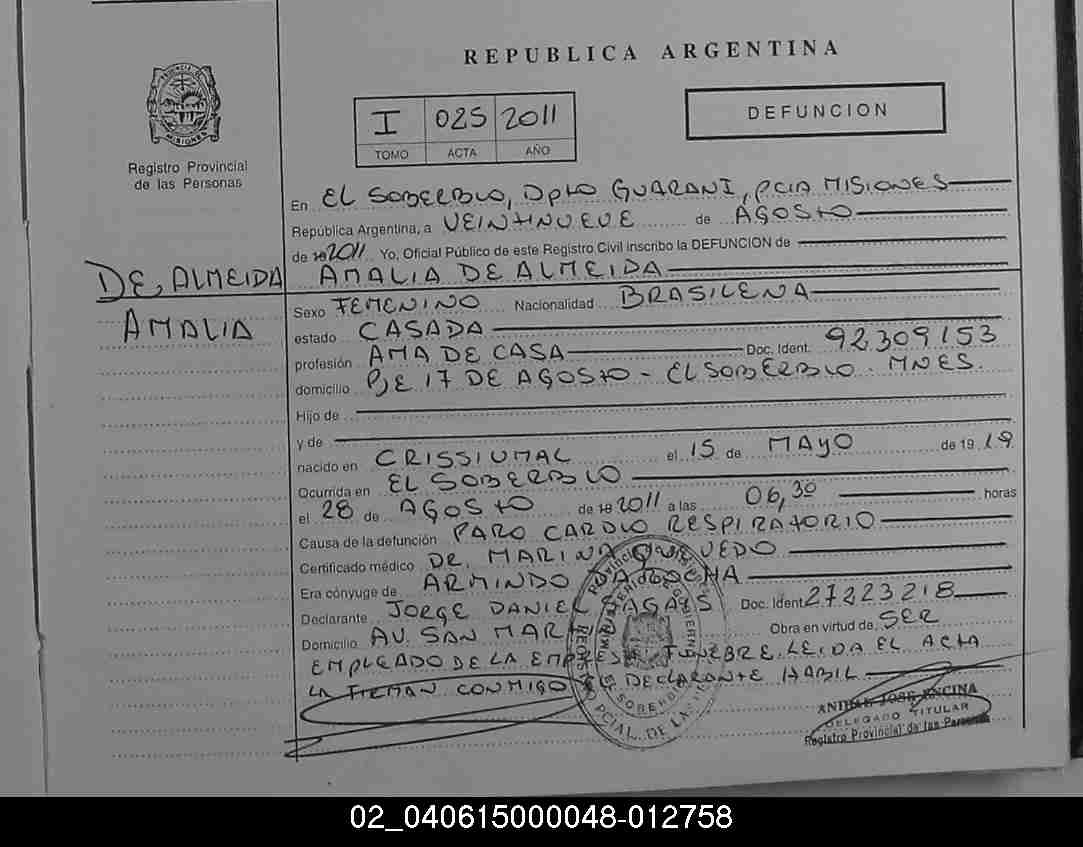 REPUBLICA ARGENTINA
PROVINCIA DE MISIONES
Registro Provincial
de las Personas
I 025 2011
TOMO ACTA AÑO
DEFUNCION
En EL SOBERBIO, Dpto GUARANI, PCIA MISIONES
República Argentina, a VEINTINUEVE de AGOSTO
de 2011 Yo, Oficial Público de este Registro Civil inscribo la DEFUNCION de
DE ALMEIDA AMALIA
AMALIA DE ALMEIDA
Sexo FEMENINO Nacionalidad BRASILENA
estado CASADA
profesión AMA DE CASA Doc. Ident. 92309153
domicilio Bje 17 DE AGOSTO - EL SOBERBIO. MNES.
Hijo de
y de
nacido en CRISSIUMAL el 15 de MAYO de 19 19
Ocurrida en EL SOBERBIO
el 28 de AGOSTO de 2011 a las 06,30 horas
Causa de la defunción PARO CARDIO RESPIRATORIO
Certificado médico DR. MARINA QUEVEDO
Era cónyuge de ARMINDO
Declarante JORGE DANIEL Doc. Ident 27223218
Domicilio AV. SAN MARTIN Obra en virtud de, SER
EMPLEADO DE LA EMPRESA FUNEBRE. LEIDA EL ACTA
LA FIRMAN CONMIGO EL DECLARANTE HABIL
ANIBAL JOSE ANCINA
DELEGADO TITULAR
Registro Provincial de las Personas
02_040615000048-012758